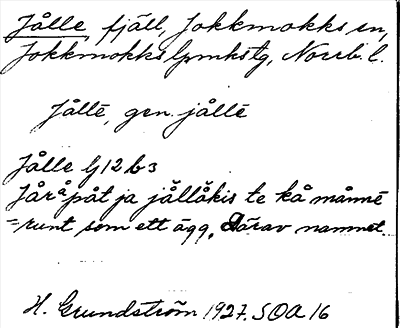 Jålle, fjäll, Jokkmokks sn,
Jokkmokks lpmkstg, Norrb. l.
Jållē, gen. jållē
Jålle lj 12 b 3
Jåråpåt ja jållåkis te kå månnē
= runt som ett ägg. Därav namnet.
H. Grundström 1927. SOA 16